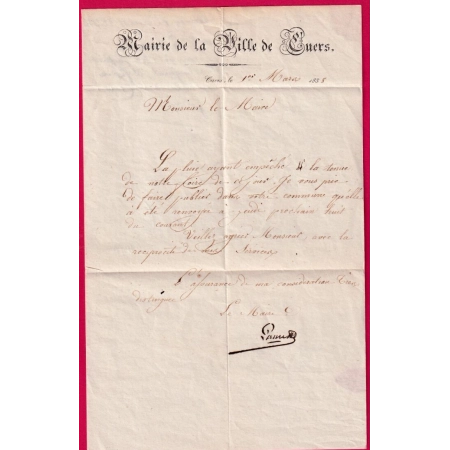 Mairie de la Ville de Cuers.
Cuers, le 1er Mars 1838
Monsieur le Maire
La pluie ayant empêché la tenue
de notre foire de ce jour. Je vous prie
de faire publier dans votre commune qu'elle
a été renvoyée à jeudi prochain huit
du courant.
Veuillez agréer Monsieur, avec la
réciprocité de mes Services
L'assurance de ma considération très
distinguée
Le Maire